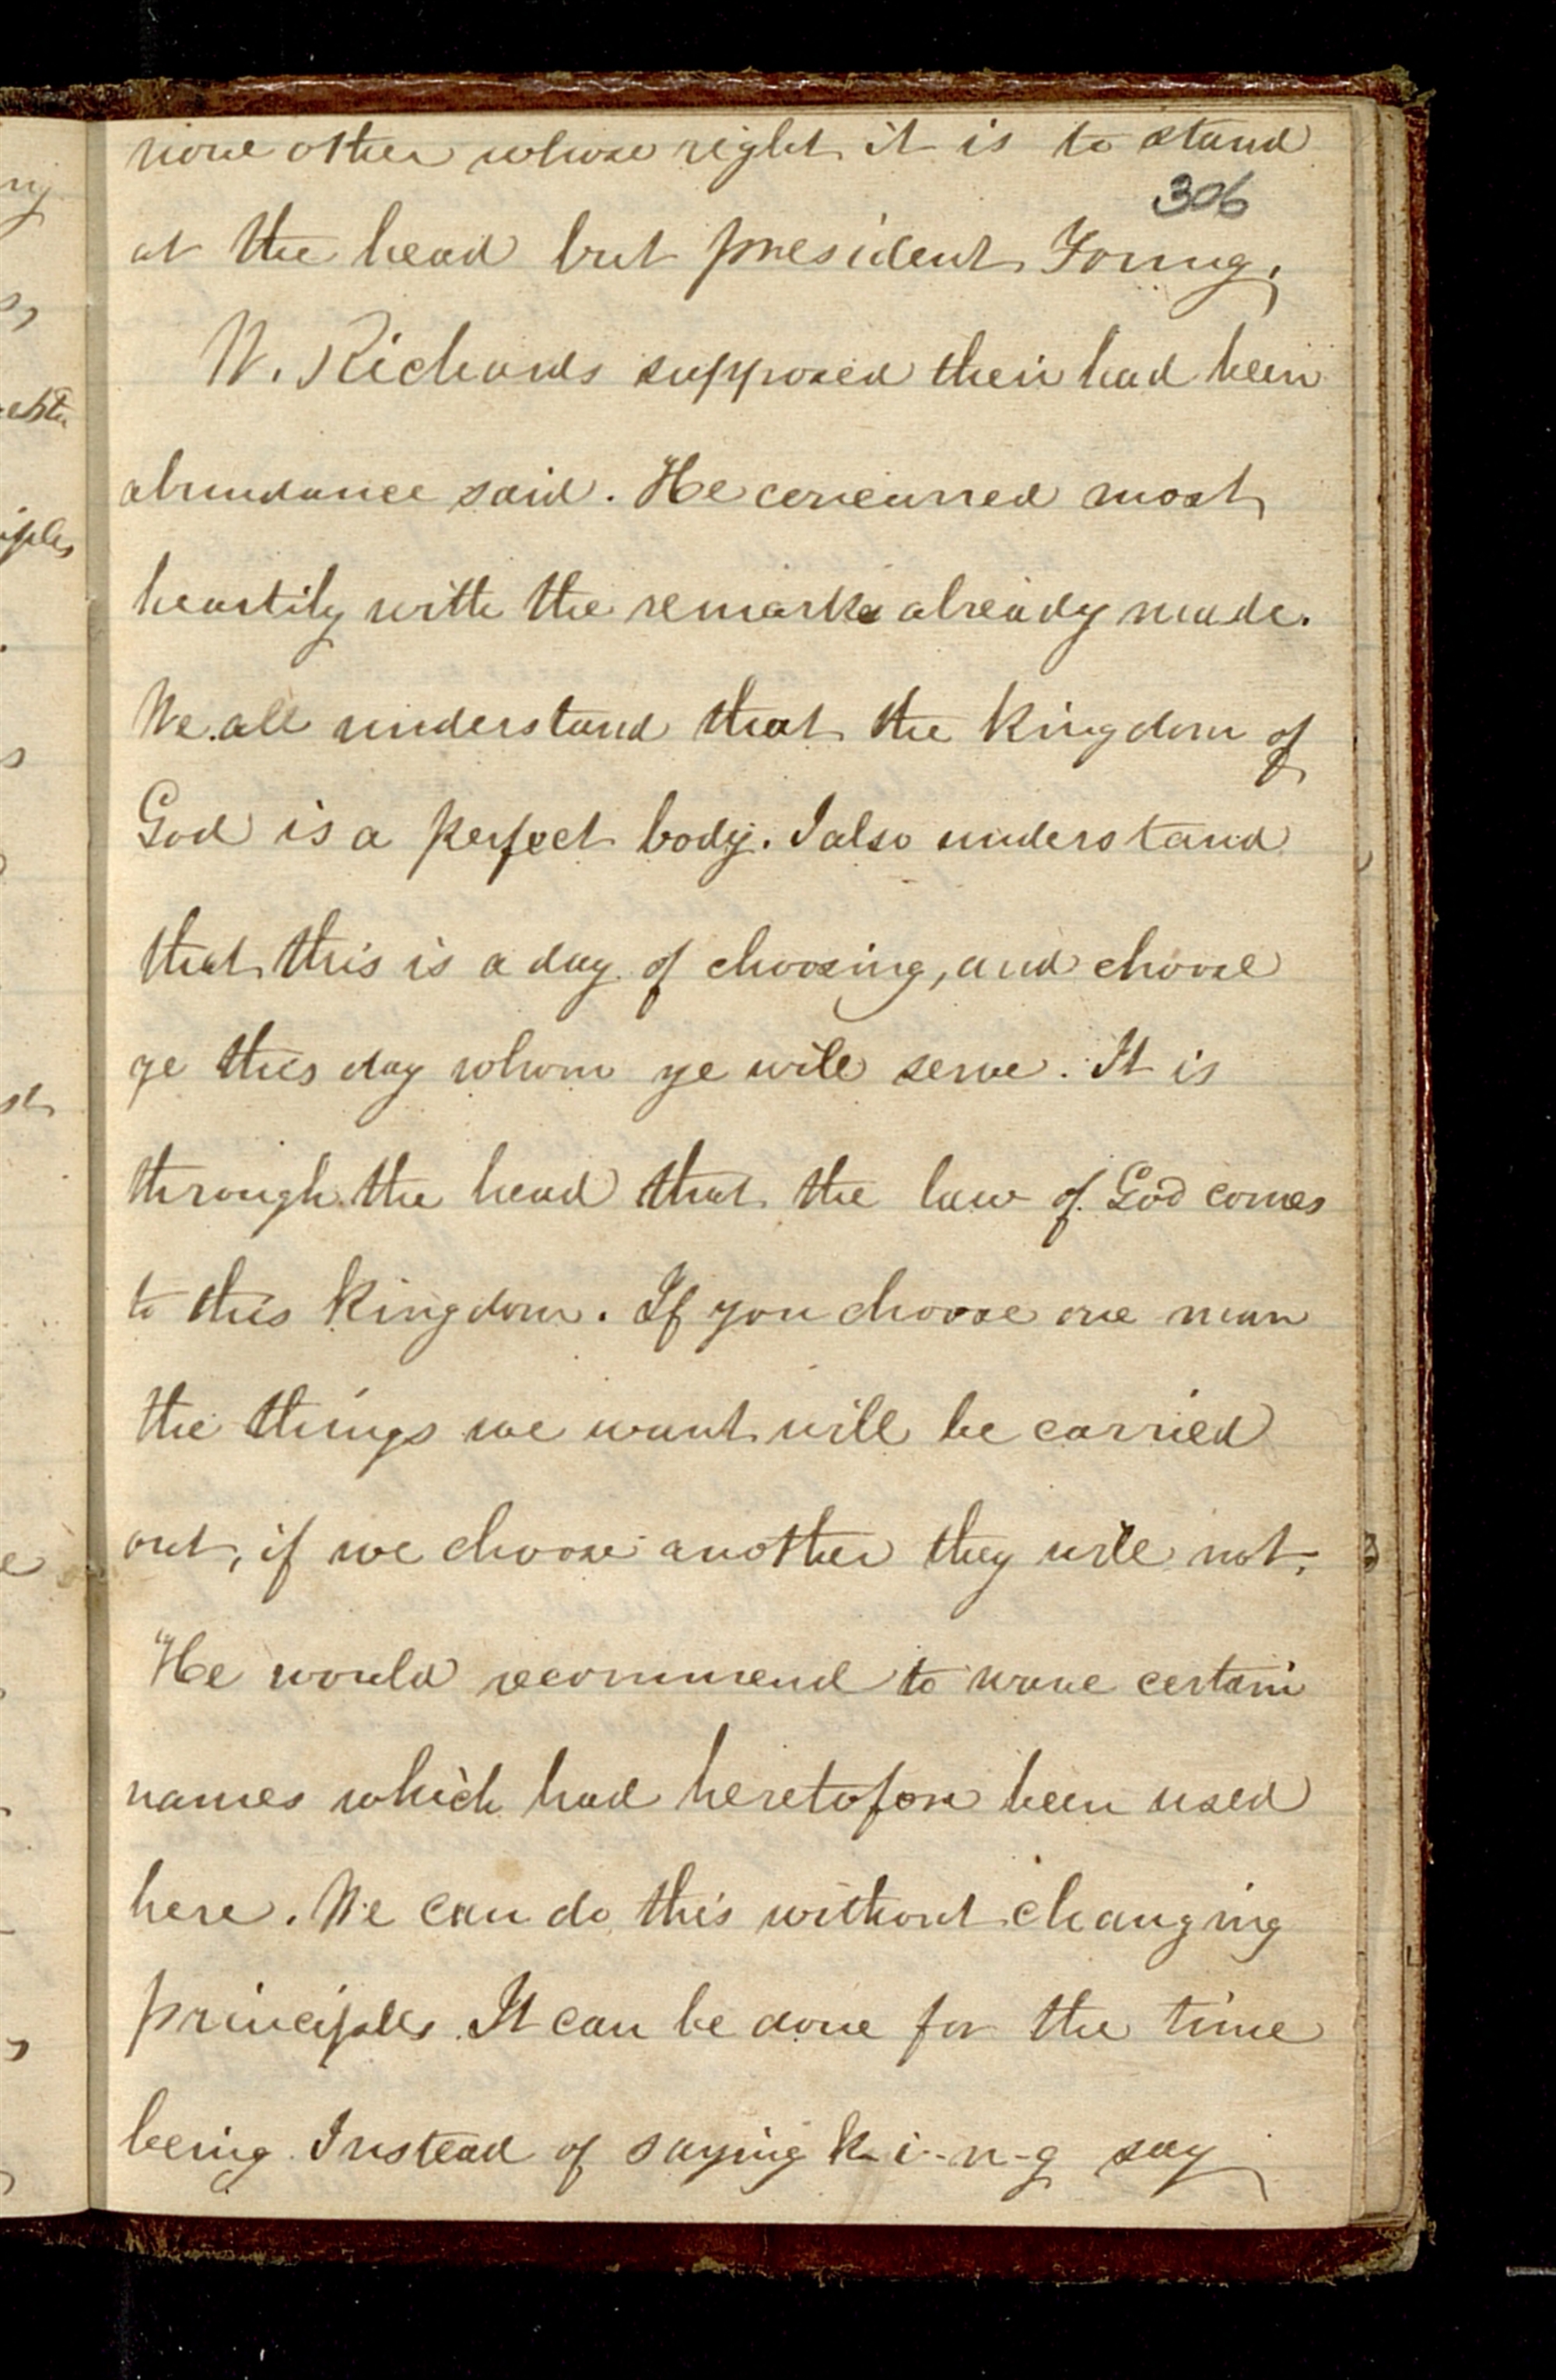 none other whose right it is to stand
306
at the head but president Young.
W. Richards supposed their had been
abundance said. He concurred most
heartily with the remarks already made.
We all understand that the kingdom of
God is a perfect body. I also understand
that this is a day of choosing, and choose
ye this day whom ye will serve. It is
through the head that the law of God comes
to this kingdom. If you choose one man
the things we want will be carried
out, if we choose another they will not.
He would recommend to wave certain
names which had heretofore been used
here. We can do this without changing
principles. It can be done for the time
being. Instead of saying k-i-n-g say